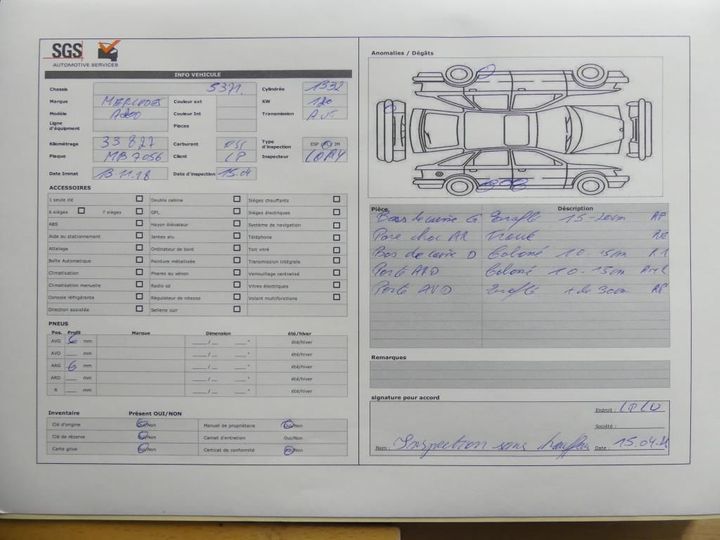 SGS
AUTOMOTIVE SERVICES
INFO VEHICULE
Chassis 5371 Cylindrée 1332
Marque MERCEDES Couleur ext KW 120
Modèle A200 Couleur Int Transmission AUT
Ligne d'équipement Pièces
Kilométrage 33 827 Carburant ESS Type d'inspection
Plaque MB7056 Client LP Inspecteur
Date Immat 13 11.18 Date d'inspection 15.04
ACCESSOIRES
1 seule clé Double cabine Sièges chauffants
6 sièges 7 sièges GPL Sièges électriques
ABS Hayon élévateur Système de navigation
Aide au stationnement Jantes alu Téléphone
Attelage Ordinateur de bord Toit vitré
Boîte Automatique Peinture métallisée Transmission intégrale
Climatisation Phares au xénon Verrouillage centralisé
Climatisation manuelle Radio cd Vitres électriques
Console réfrigérante Régulateur de vitesse Volant multifonctions
Direction assistée Sellerie cuir
PNEUS
Pos. Profil Marque Dimension été/hiver
AVG 6 mm été/hiver
AVD mm été/hiver
ARG 6 mm été/hiver
ARD mm été/hiver
R mm été/hiver
Inventaire Présent OUI/NON
Clé d'origine Oui/Non Manuel de propriétaire Oui/Non
Clé de réserve Oui/Non Carnet d'entretien Oui/Non
Carte grise Oui/Non Certicat de conformité Oui/Non
Anomalies / Dégâts
Pièce Déscription
Bas de caisse G 15-20cm RP
Pare choc AR
Bas de caisse D 10-15cm
Porte ARD 10-15cm
Porte AVD RP
Remarques
signature pour accord
Endroit :
Société :
Nom : Inspection sans chauffeur Date : 15.04